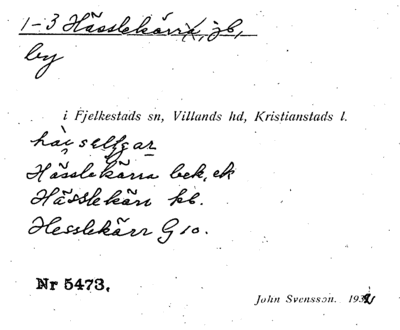 1-3 Hässlekärr, jb,
by
i Fjelkestads sn, Villands hd, Kristianstads l.
Hässlekärra bek, ek
Hässlekärr kb.
Hesslekärr G 10.
Nr 5473.
John Svensson. 193